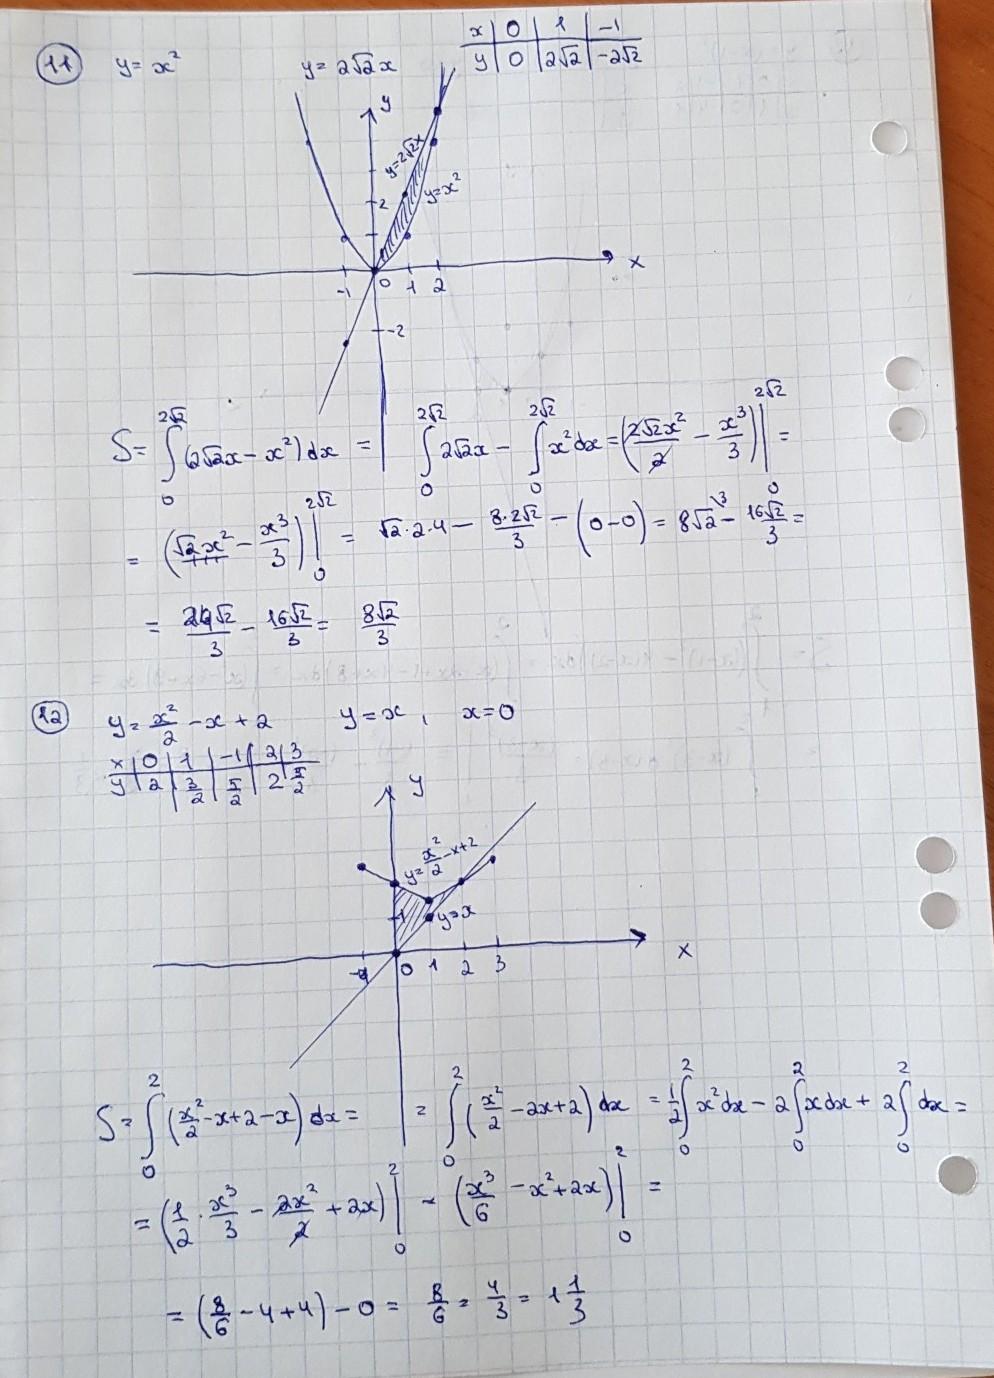 11 y = x² y = 2√2x
x | 0 | 1 | -1
y | 0 | 2√2 | -2√2
y
y=2√2x
y=x²
2
-1 0 1 2 x
-2
S = ∫₀^{2√2} (2√2x - x²) dx = ∫₀^{2√2} 2√2x - ∫₀^{2√2} x²dx = (2√2x²/2 - x³/3) |₀^{2√2} =
= (√2x² - x³/3) |₀^{2√2} = √2·2·4 - 8·2√2/3 - (0-0) = 8√2\³ - 16√2/3 =
= 24√2/3 - 16√2/3 = 8√2/3
12 y = x²/2 - x + 2 y = x, x = 0
x | 0 | 1 | -1 | 2 | 3
y | 2 | 3/2 | 5/2 | 2 | 5/2
y
y = x²/2 - x + 2
1
y=x
0 1 2 3 x
S = ∫₀² (x²/2 - x + 2 - x) dx = = ∫₀² (x²/2 - 2x + 2) dx = 1/2 ∫₀² x²dx - 2 ∫₀² xdx + 2 ∫₀² dx =
= (1/2 · x³/3 - 2x²/2 + 2x) |₀² = (x³/6 - x² + 2x) |₀² =
= (8/6 - 4 + 4) - 0 = 8/6 = 4/3 = 1 1/3